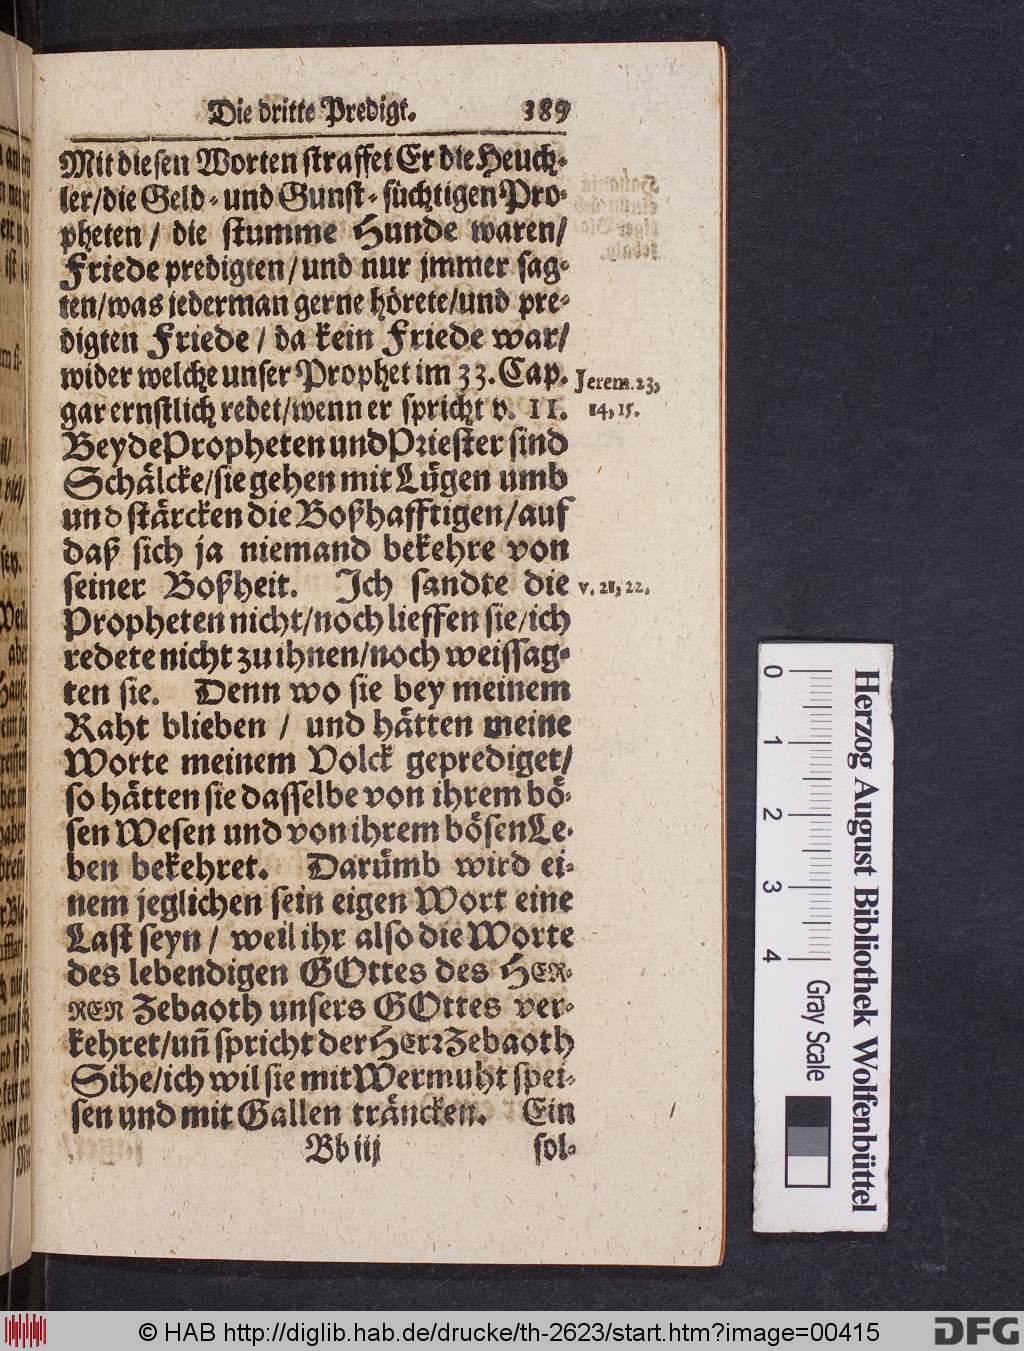 Die dritte Predigt. 389
Mit diesen Worten straffet Er die Heuch-
ler/die Geld-und Gunst-süchtigen Pro-
pheten / die stumme Hunde waren/
Friede predigten/und nur jmmer sag-
ten/was iederman gerne hörete/und pre-
digten Friede / da kein Friede war/
wider welche unser Prophet im 33. Cap.
Jerem. 23,
gar ernstlich redet/wenn er spricht v. 11.
14, 15.
Beyde Propheten und Priester sind
Schälcke/sie gehen mit Lügen umb
und stärcken die Boßhafftigen/auf
daß sich ja niemand bekehre von
seiner Boßheit. Ich sandte die
v. 21, 22.
Propheten nicht/noch lieffen sie/ich
redete nicht zu ihnen/noch weissag-
ten sie. Denn wo sie bey meinem
Raht blieben / und hätten meine
Worte meinem Volck geprediget/
so hätten sie dasselbe von ihrem bö-
sen Wesen und von ihrem bösen Le-
ben bekehret. Darümb wird ei-
nem jeglichen sein eigen Wort eine
Last seyn / weil ihr also die Worte
des lebendigen GOttes des HER-
REN Zebaoth unsers GOttes ver-
kehret/uñ spricht der HErr Zebaoth
Sihe/ich wil sie mit Wermuht spei-
sen und mit Gallen träncken. Ein
Bb iij sol-
Herzog August Bibliothek Wolfenbüttel
0 1 2 3 4
Gray Scale
© HAB http://diglib.hab.de/drucke/th-2623/start.htm?image=00415
DFG